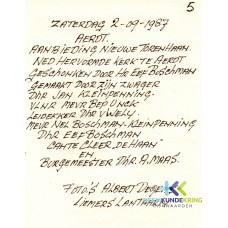 5
ZATERDAG 2-09-1987
AERDT.
AANBIEDING NIEUWE TORENHAAN.
NED HERVORMDE KERK TE AERDT
GESCHONKEN DOOR HR EEF BOSCHMAN
GEMAAKT DOOR ZIJN ZWAGER
DHR JAN KLEINPENNING.
VLNR MEVR BEP UNCK
LEIDEKKER DHR V WELY.
MEVR NEL BOSCHMAN-KLEINPENNING
DHR EEF BOSCHMAN
CANTE CLEER, DE HAAN"
EN
BURGEMEESTER DHR. A. MAAS.
FOTO'S ALBERT
LIEMERS LANTAARN
KUNDEKRING